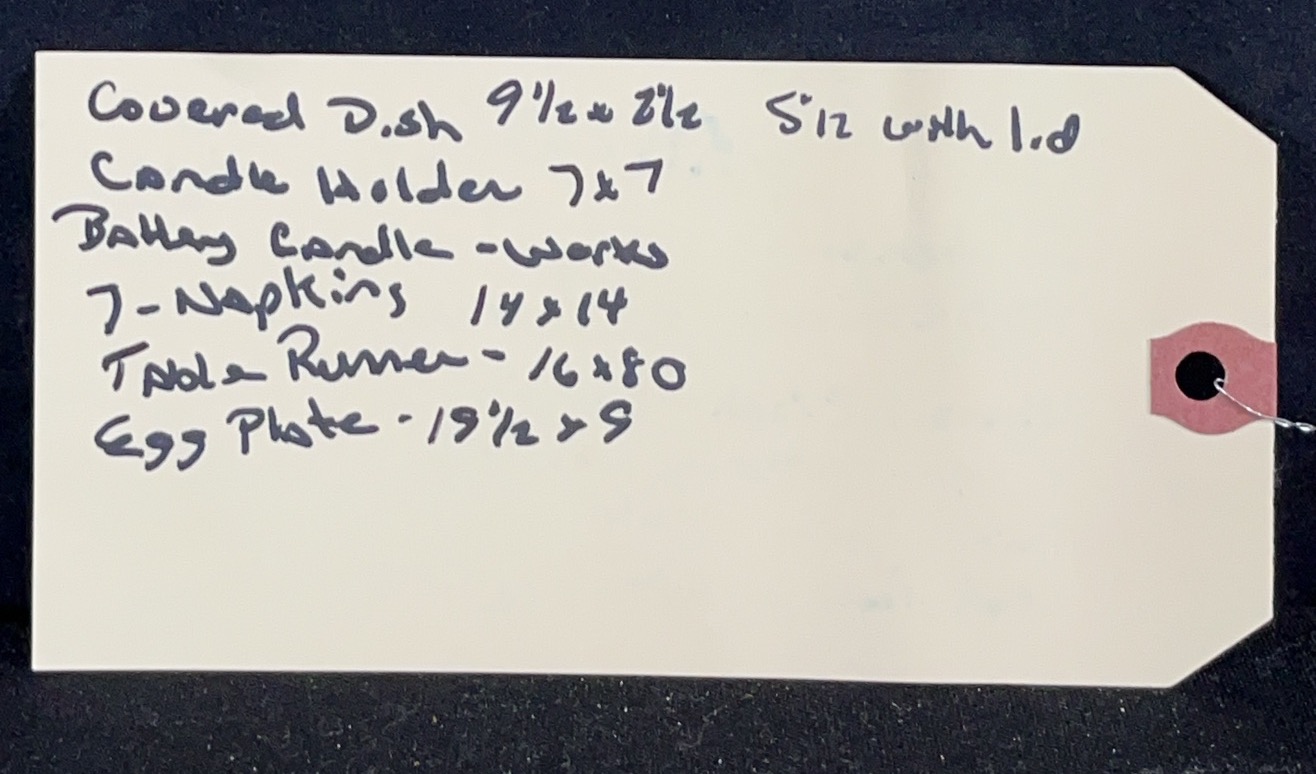 Covered Dish 9 1/2 x 2 1/2 5 1/2 with lid
Candle Holder 7x7
Battery Candle - Works
7 - Napkins 14 x 14
Table Runner - 16 x 80
Egg Plate - 19 1/2 x 9